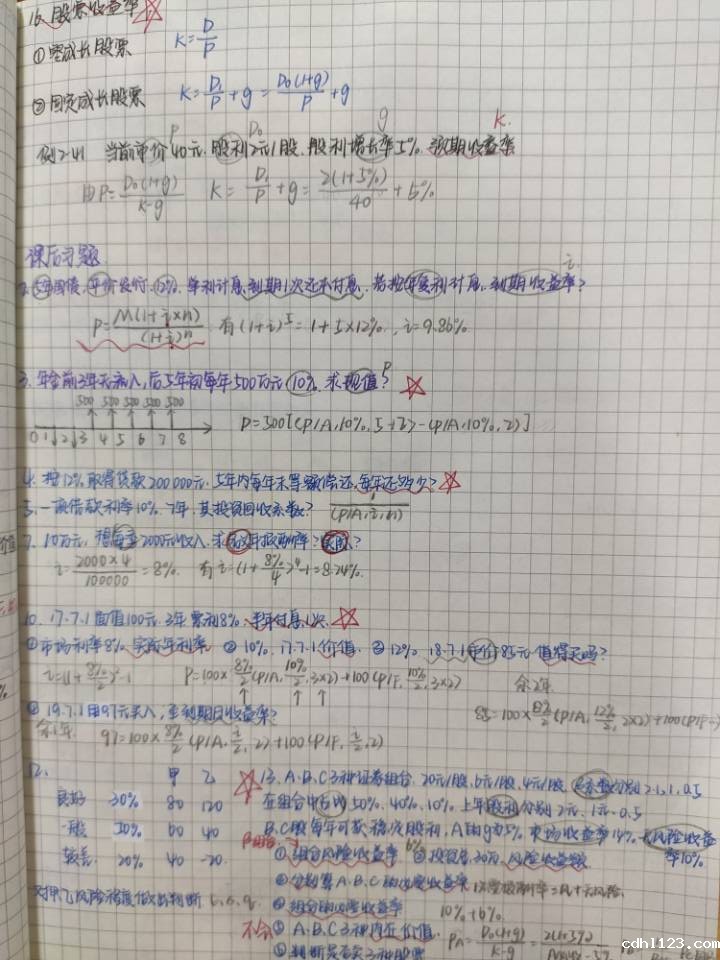 16. 股票收益率
① 零成长股票 K=D/P
② 固定成长股票 K=D₁/P+g=D₀(1+g)/P+g
P D₀ g K.
例2-41 当前市价40元.股利2元/股.股利增长率5%.预期收益率
由P=D₀(1+g)/K-g K=D₁/P+g=2(1+5%)/40+5%
课后习题
i
2. 5年国债,平价发行.12%.单利计息,到期1次还本付息.若按年复利计息.到期收益率?
P=M(1+i×n)/(1+i)ⁿ 有(1+i)⁵=1+5×12%., i=9.86%
P
3. 年金前3年无流入,后5年初每年500万元 10%.求现值?
500 500 500 500 500
0 1 2 3 4 5 6 7 8
P=500[(P/A,10%,5+2)-(P/A,10%,2)]
4. 按12%取得贷款200000元.5年内每年末等额偿还,每年还多少?
5. 一项借款利率10%.7年,其投资回收系数? 1/(P/A,i,n)
7. 10万元,想每季2000元收入.求 年报酬率?
i=2000×4/100000=8%. 有i=(1+8%/4)⁴-1=8.24%.
10. 17.7.1面值100元.3年票利8%.半年付息1次.
①市场利率8%.实际年利率 ②10%.17.7.1价值. ③12% 18.7.1市价85元 值得买吗?
i=(1+8%/2)²-1 P=100×8%/2(P/A,10%/2,3×2)+100(P/F,10%/2,3×2) 余2年
85=100×8%/2(P/A,12%/2,2×2)+100(P/F
④ 19.7.1由97元买入,至到期日收益率?
余1年. 97=100×8%/2(P/A,i/2,2)+100(P/F,i/2,2)
12. 甲 乙
良好 30% 80 120
一般 50% 60 40
较差 20% 40 -20
对甲乙风险程度做出判断
13. A.B.C3种证券组合.20元/股,6元/股,4元/股. 系数分别2.1,1,0.5
在组合中占比50%.40%.10%.上年股利分别2元.1元.0.5
B.C股每年可获稳定股利,A的g为5%.市场收益率14%.无风险收益率10%
①组合风险收益率 6% ②投资总30万,风险收益额
③分别算A.B.C的必要收益率
④组合的必要收益率 10%+6%.
⑤A.B.C3种内在价值. P_A=D₀(1+g)/K-g=
⑥判断是否买3种股票
cdhl123.com